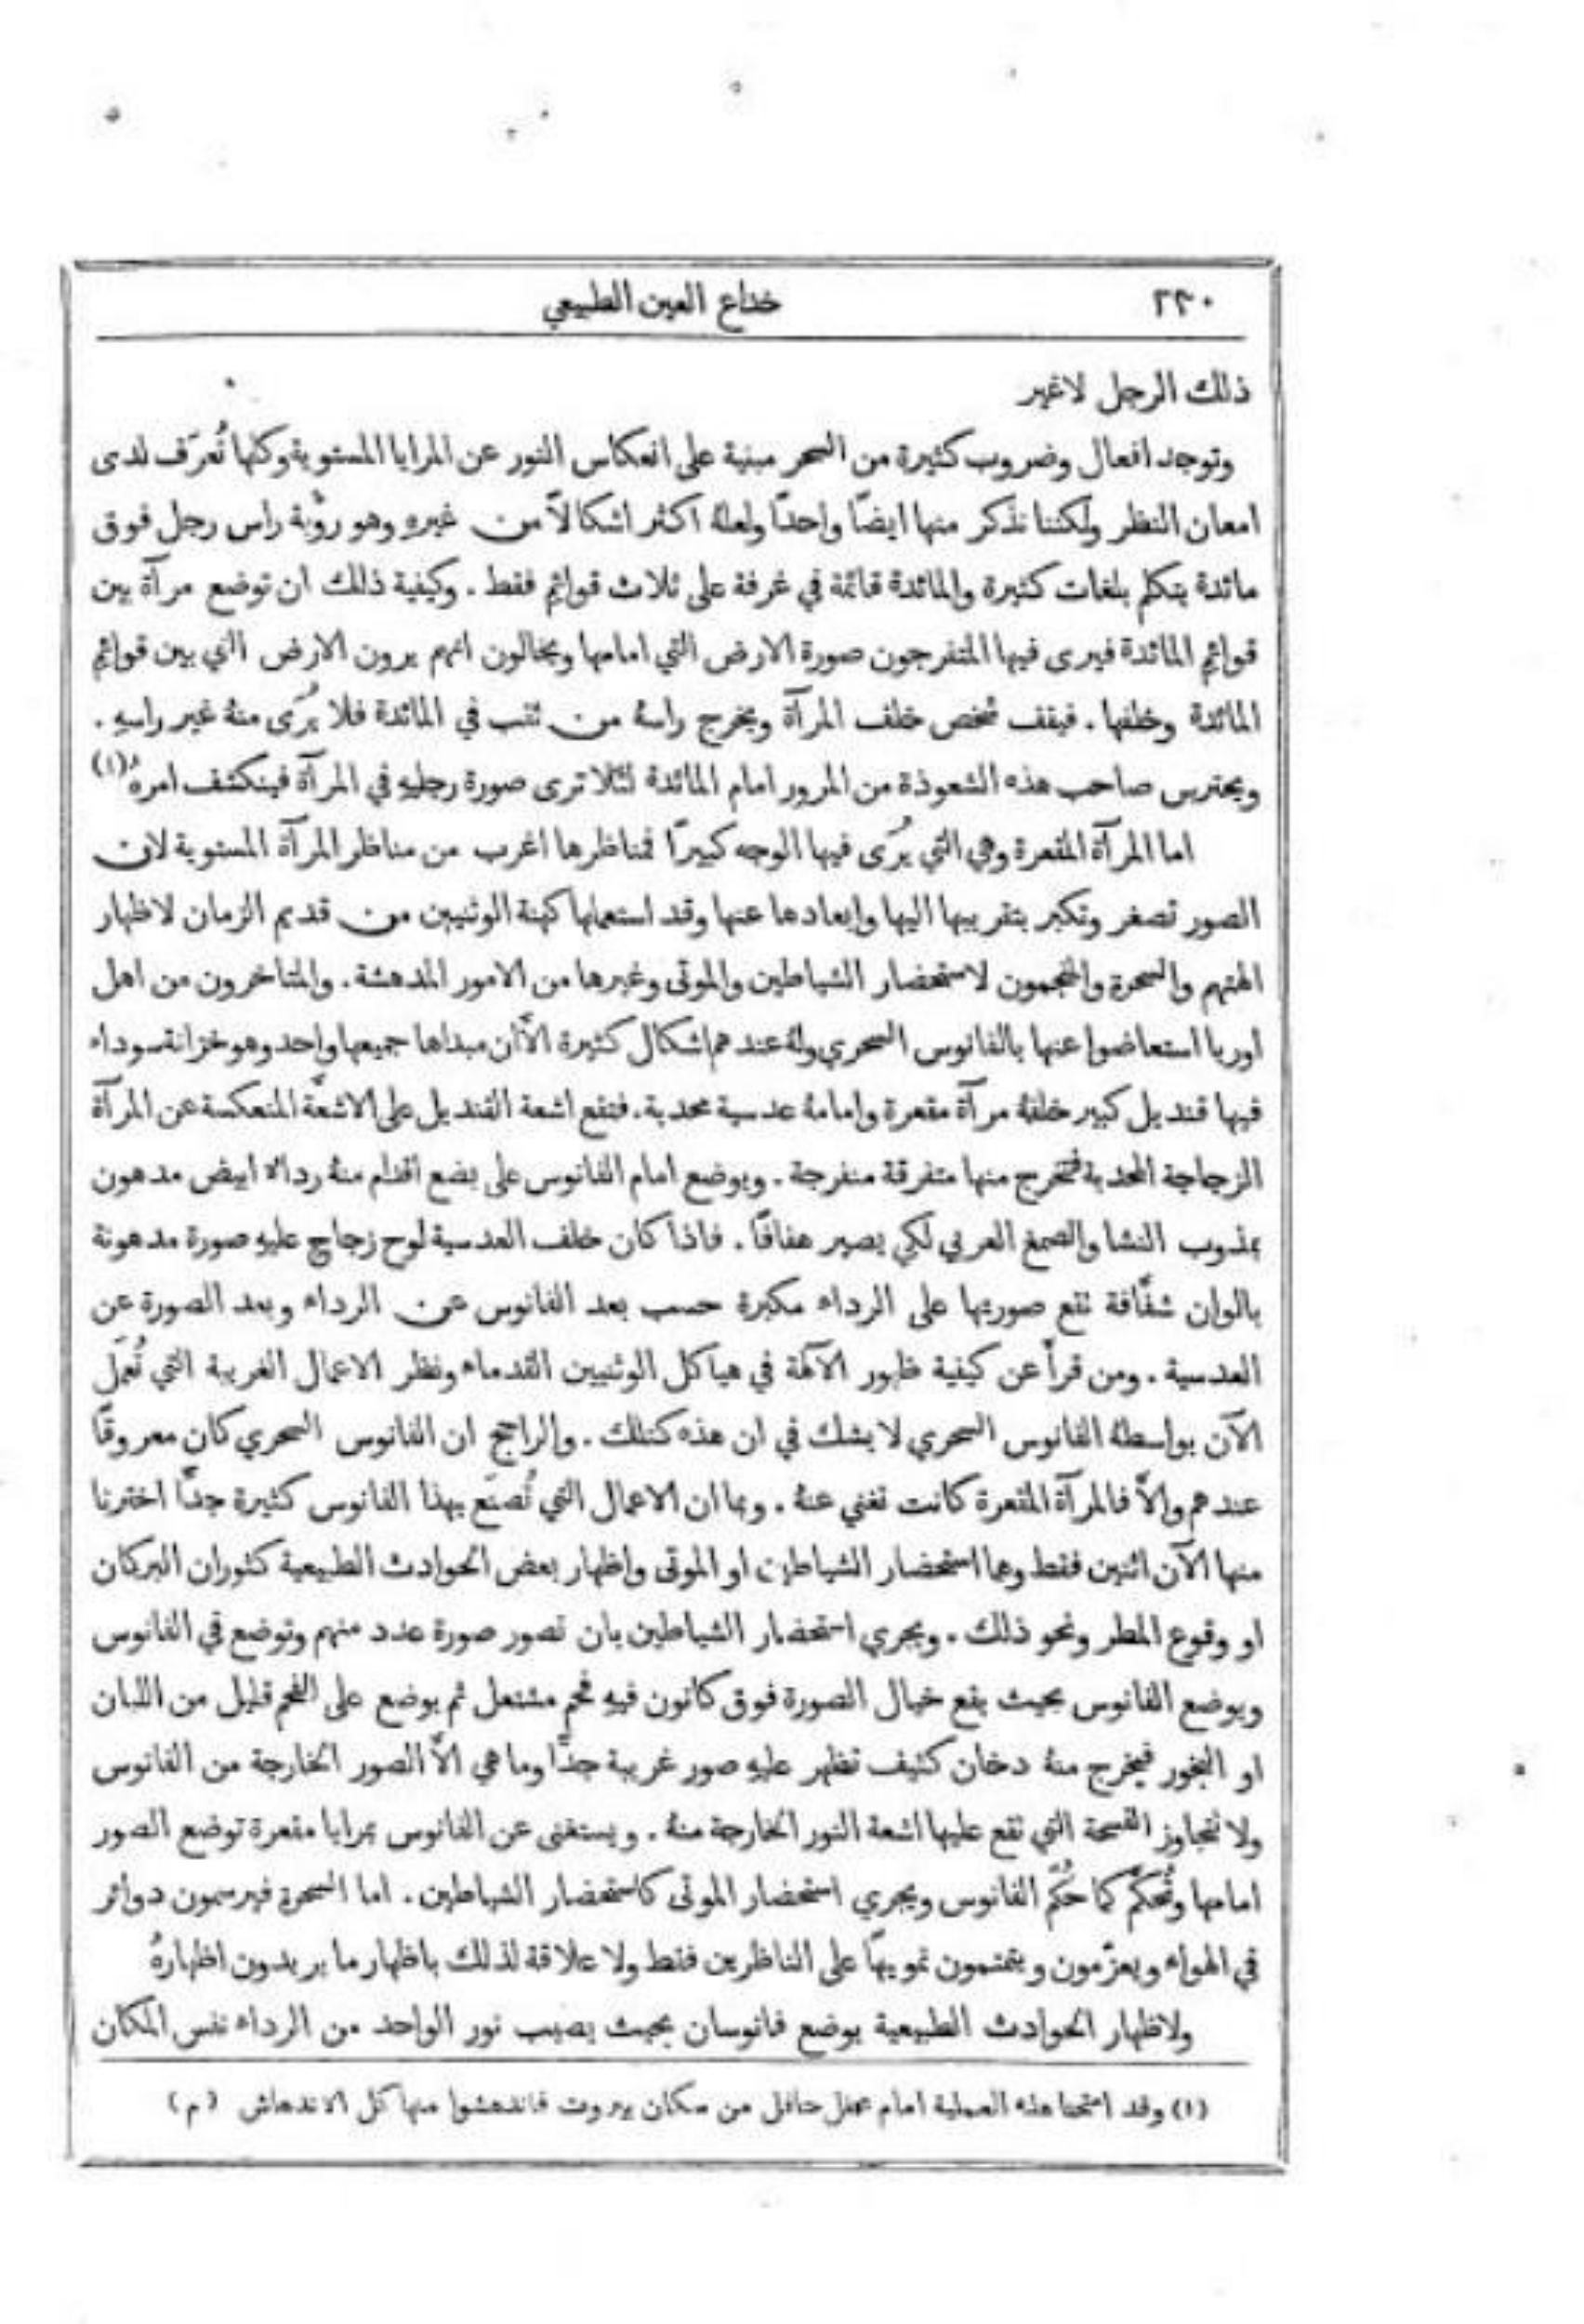 ٢٣٠
خداع العين الطبيعي
ذلك الرجل لا غير
وتوجد افعال وضروب كثيرة من السحر مبنية على انعكاس النور عن المرايا المستوية وكلها تُعرَف لدى
امعان النظر ولكننا نذكر منها ايضًا واحدًا ولعلهُ اكثر اشكالاً من غيرهِ وهو رؤية راس رجل فوق
مائدة يتكلم بلغات كثيرة والمائدة قائمة في غرفة على ثلاث قوائم فقط. وكيفية ذلك ان توضع مرآة بين
قوائم المائدة فيرى فيها المتفرجون صورة الارض التي امامها ويخالون انهم يرون الارض التي بين قوائم
المائدة وخلفها. فيقف شخص خلف المرآة ويخرج راسهُ من ثقب في المائدة فلا يُرَى منهُ غير راسهِ.
ويحترس صاحب هذه الشعوذة من المرور امام المائدة لئلا ترى صورة رجليهِ في المرآة فينكشف امرهُ(١)
اما المرآة المقعرة وهي التي يُرَى فيها الوجه كبيرًا فمناظرها اغرب من مناظر المرآة المستوية لان
الصور تصغر وتكبر بتقريبها اليها وابعادها عنها وقد استعملها كهنة الوثنيين من قديم الزمان لاظهار
الهتهم والسحرة والمنجمون لاستحضار الشياطين والموتى وغيرها من الامور المدهشة. والمتاخرون من اهل
اوربا استعاضوا عنها بالفانوس السحري ولهُ عندهم اشكال كثيرة الاَّ ان مبداها جميعها واحد وهو خزانة سوداء
فيها قنديل كبير خلفهُ مرآة مقعرة وامامهُ عدسية محدبة. فتقع اشعة القنديل على الاشعَّة المنعكسة عن المرآة
الزجاجة المحدبة فتخرج منها متفرقة منفرجة. ويوضع امام الفانوس على بضع اقدام منهُ رداءٌ ابيض مدهون
بمذوب النشا والصمغ العربي لكي يصير هفافًا. فاذا كان خلف العدسية لوح زجاج عليهِ صورة مدهونة
بالوان شفَّافة تقع صورتها على الرداء مكبرة حسب بعد الفانوس عن الرداء وبعد الصورة عن
العدسية. ومن قرأ عن كيفية ظهور الآلهة في هياكل الوثنيين القدماء ونظر الاعمال الغريبة التي تُعمَل
الآن بواسطة الفانوس السحري لا يشك في ان هذه كتلك. والراجح ان الفانوس السحري كان معروفًا
عندهم والاَّ فالمرآة المقعرة كانت تغني عنهُ. وبما ان الاعمال التي تُصنَع بهذا الفانوس كثيرة جدًّا اخترنا
منها الآن اثنين فقط وهما استحضار الشياطين او الموتى واظهار بعض الحوادث الطبيعية كثوران البركان
او وقوع المطر ونحو ذلك. ويجري استحضار الشياطين بان تصور صورة عدد منهم وتوضع في الفانوس
ويوضع الفانوس بحيث يقع خيال الصورة فوق كانون فيهِ فحم مشتعل ثم يوضع على الفحم قليل من اللبان
او البخور فيخرج منهُ دخان كثيف تظهر عليهِ صور غريبة جدًّا وما هي الاَّ الصور الخارجة من الفانوس
ولا تتجاوز الفسحة التي تقع عليها اشعة النور الخارجة منهُ. ويستغنى عن الفانوس بمرايا مقعرة توضع الصور
امامها وتُحكَّم كما حُكِّم الفانوس ويجري استحضار الموتى كاستحضار الشياطين. اما السحرة فيرسمون دوائر
في الهواء ويعزّمون ويتمتمون تمويهًا على الناظرين فقط ولا علاقة لذلك باظهار ما يريدون اظهارهُ
ولاظهار الحوادث الطبيعية يوضع فانوسان بحيث يصيب نور الواحد من الرداء نفس المكان
(١) وقد امتحنا هذه العملية امام محفل حافل من سكان بيروت فاندهشوا منها كل الاندهاش (م)